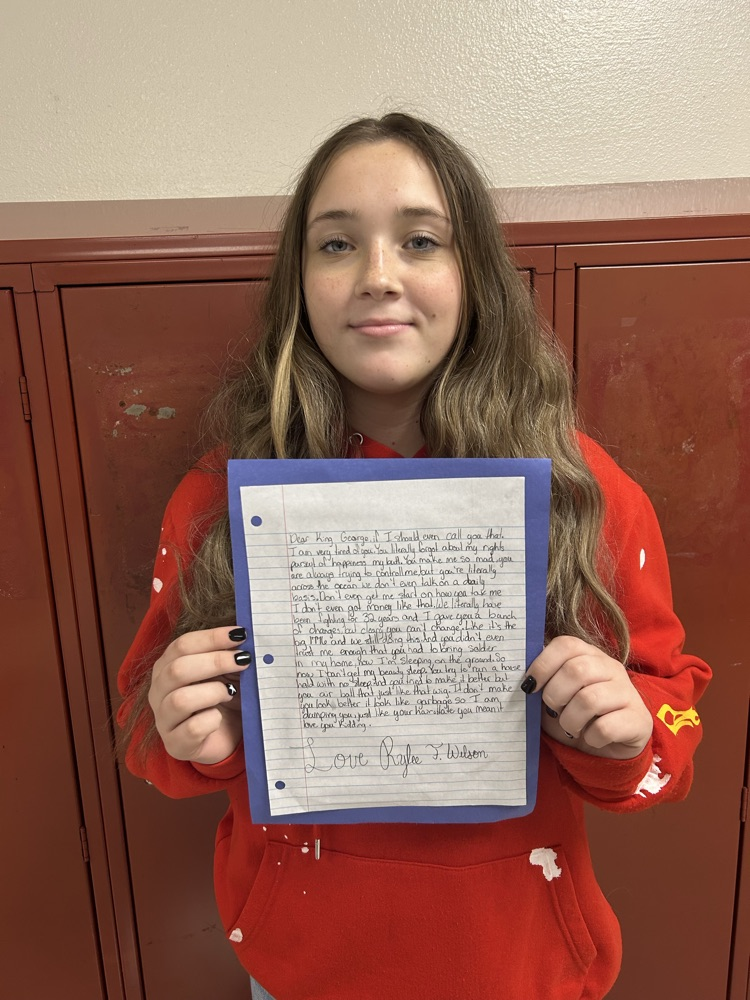 Dear King George, if I should even call you that.
I am very tired of you. You literally forgot about my rights
pursuit of happiness my butt. You make me so mad, you
are always trying to control me but, you're literally
across the ocean we don't even talk on a daily
basis. Don't even get me start on how you tax me
I don't even got money like that. We literally have
been fighting for 32 years and I gave you a bunch
of changes but clearly you can't change. Like it's the
big 1776 and we still doing this. And you didn't even
trust me enough that you had to bring solder
in my home, now I'm sleeping on the ground. So
now I can't get my beauty sleep. You try to run a house
hold with no sleep. And you tried to make it better but
you air ball that just like that wig. It don't make
you look better it look like garbage so I am
dumping you, just like your hair. Hate you mean it
love you kidding.
Love Rylee F. Wilson